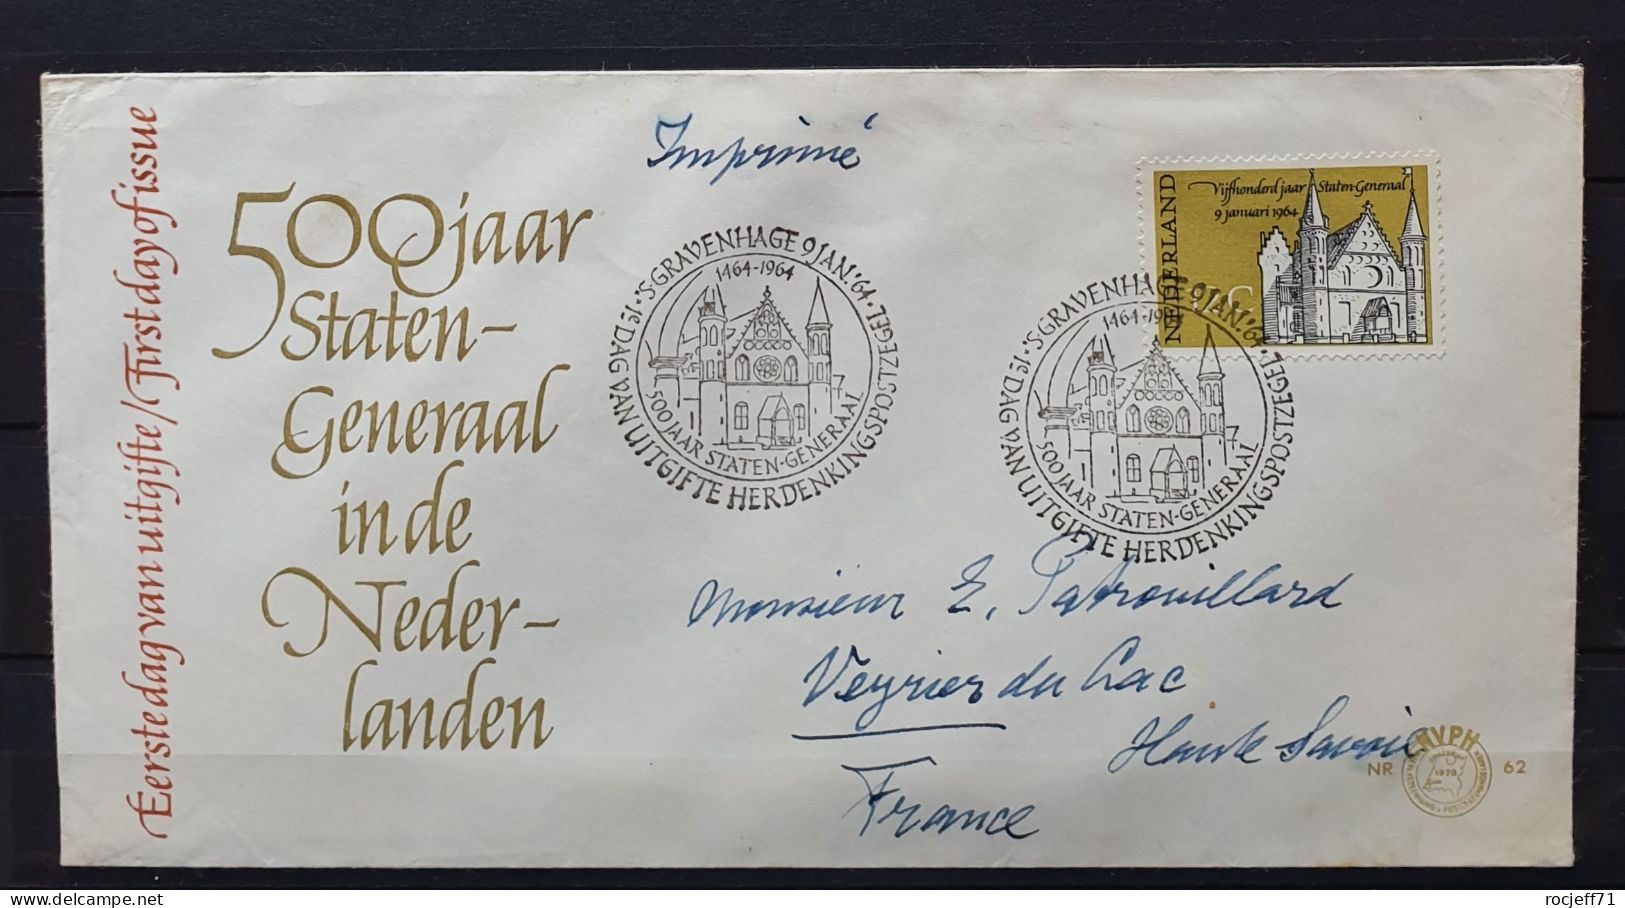 Eerste dag van uitgifte / First day of issue
500 jaar
Staten-
Generaal
in de
Neder-
landen
Imprimé
'S-GRAVENHAGE 9 JAN. '64
1464-1964
500 JAAR STATEN-GENERAAL
1e DAG VAN UITGIFTE HERDENKINGSPOSTZEGEL
NEDERLAND
Vijfhonderd jaar Staten-Generaal
9 januari 1964
'S-GRAVENHAGE 9 JAN. '64
1464-1964
500 JAAR STATEN-GENERAAL
1e DAG VAN UITGIFTE HERDENKINGSPOSTZEGEL
Monsieur E. Patrouillard
Veyrier du Lac
Haute Savoie
France
NVPH
NR 62
1928
rocjeff71